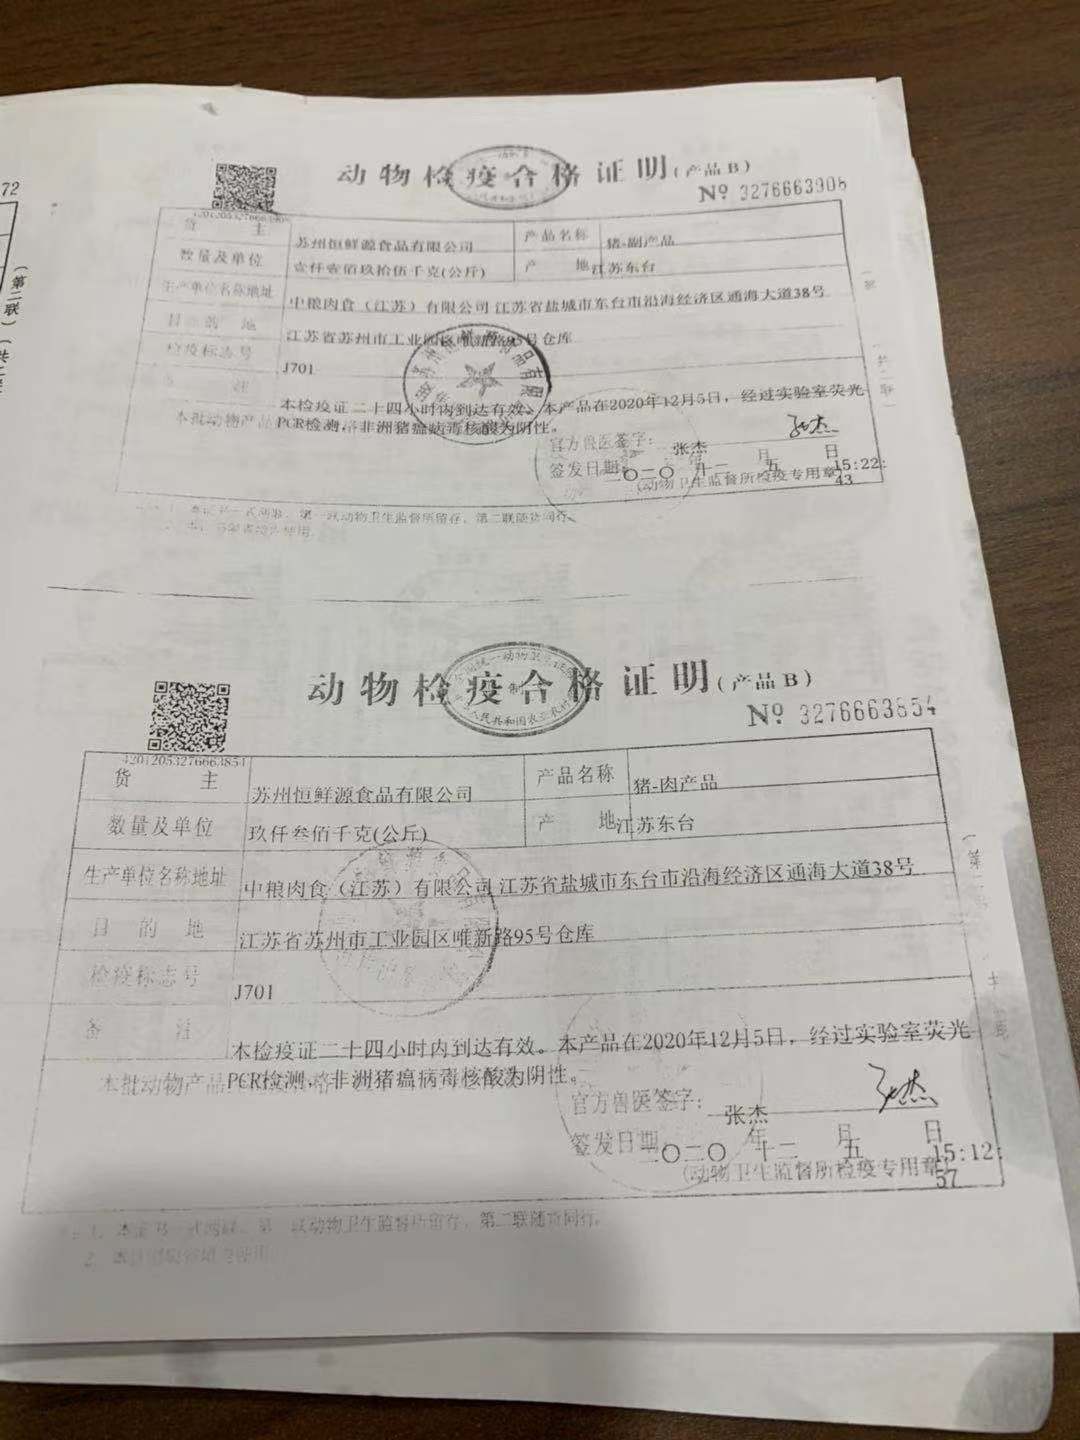 72
(第二联)(共二联
动物检疫合格证明(产品B)
№ 3276663908
货 主 苏州恒鲜源食品有限公司 产品名称 猪-副产品
数量及单位 壹仟壹佰玖拾伍千克(公斤) 产 地 江苏东台
生产单位名称地址 中粮肉食（江苏）有限公司 江苏省盐城市东台市沿海经济区通海大道38号
目 的 地 江苏省苏州市工业园区唯新路95号仓库
检疫标志号 J701
注 本检疫证二十四小时内到达有效。本产品在2020年12月5日，经过实验室荧光
本批动物产品 PCR检测，非洲猪瘟病毒核酸为阴性。
官方兽医签字： 张杰 张杰
签发日期： 二〇二〇 年 十二 月 五 日 15:22:
43
(动物卫生监督所检疫专用章)
动物卫生监督所留存，第二联随货同行。
动物检疫合格证明(产品B)
№ 3276663854
42012053276663854
货 主 苏州恒鲜源食品有限公司 产品名称 猪-肉产品
数量及单位 玖仟叁佰千克(公斤) 产 地 江苏东台
生产单位名称地址 中粮肉食（江苏）有限公司 江苏省盐城市东台市沿海经济区通海大道38号
目 的 地 江苏省苏州市工业园区唯新路95号仓库
检疫标志号 J701
备 注 本检疫证二十四小时内到达有效。本产品在2020年12月5日，经过实验室荧光
本批动物产品 PCR检测，非洲猪瘟病毒核酸为阴性。
官方兽医签字： 张杰 张杰
签发日期： 二〇二〇 年 十二 月 五 日 15:12:
57
(动物卫生监督所检疫专用章)
动物卫生监督所留存，第二联随货同行。